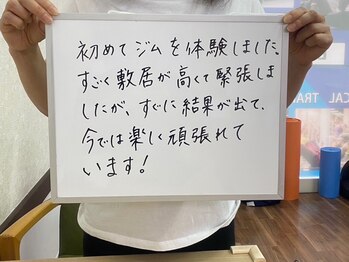 初めてジムを体験しました。
すごく敷居が高くて緊張しま
したが、すぐに結果が出て、
今では楽しく頑張れて
います!
CAL TRA